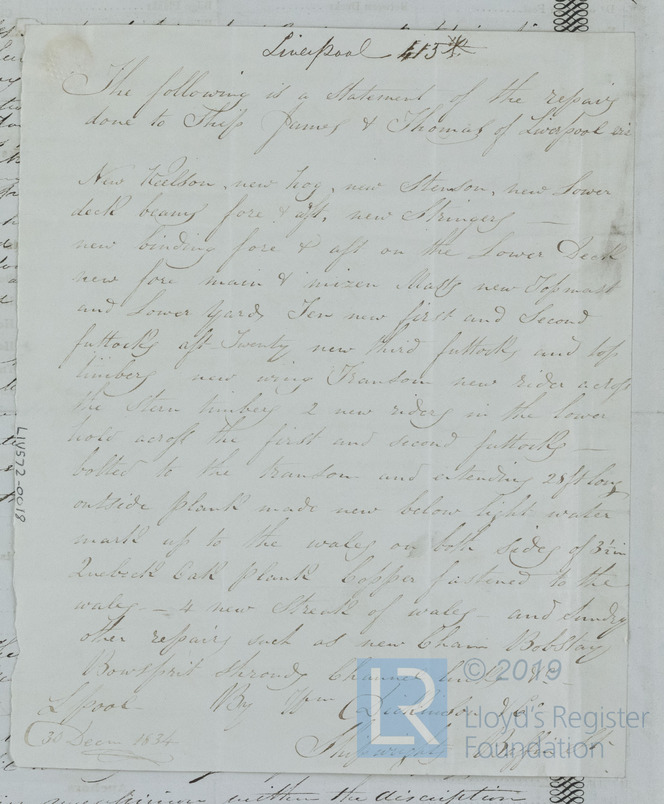 Liverpool 413
The following is a Statement of the repairs
done to Ship James & Thomas of Liverpool viz
New Keelson, new hog, new Stemson, new Lower
deck beams fore & aft, new Stringers —
new binding fore & aft on the Lower Deck
new fore main & mizen Masts new Topmast
and Lower Yards Ten new first and Second
futtocks aft Twenty new third futtocks and top
timbers new wing Transom new rider across
the Stern timbers 2 new riders in the lower
hold across the first and second futtocks —
bolted to the transom and extending 28 ft long
outside plank made new below light water
mark up to the wales on both sides of 3½ in
Quebeck Oak plank Copper fastened to the
wales — 4 new Streak of wales — and Sundry
other repairs such as new Chain Bobstay
Bowsprit shrouds Channel &c
Lpool By Wm Dickinson & Co
30 Decem 1834 Shipwrights
LIV572-0018
© 2019
LR
Lloyd's Register
Foundation
within the discription